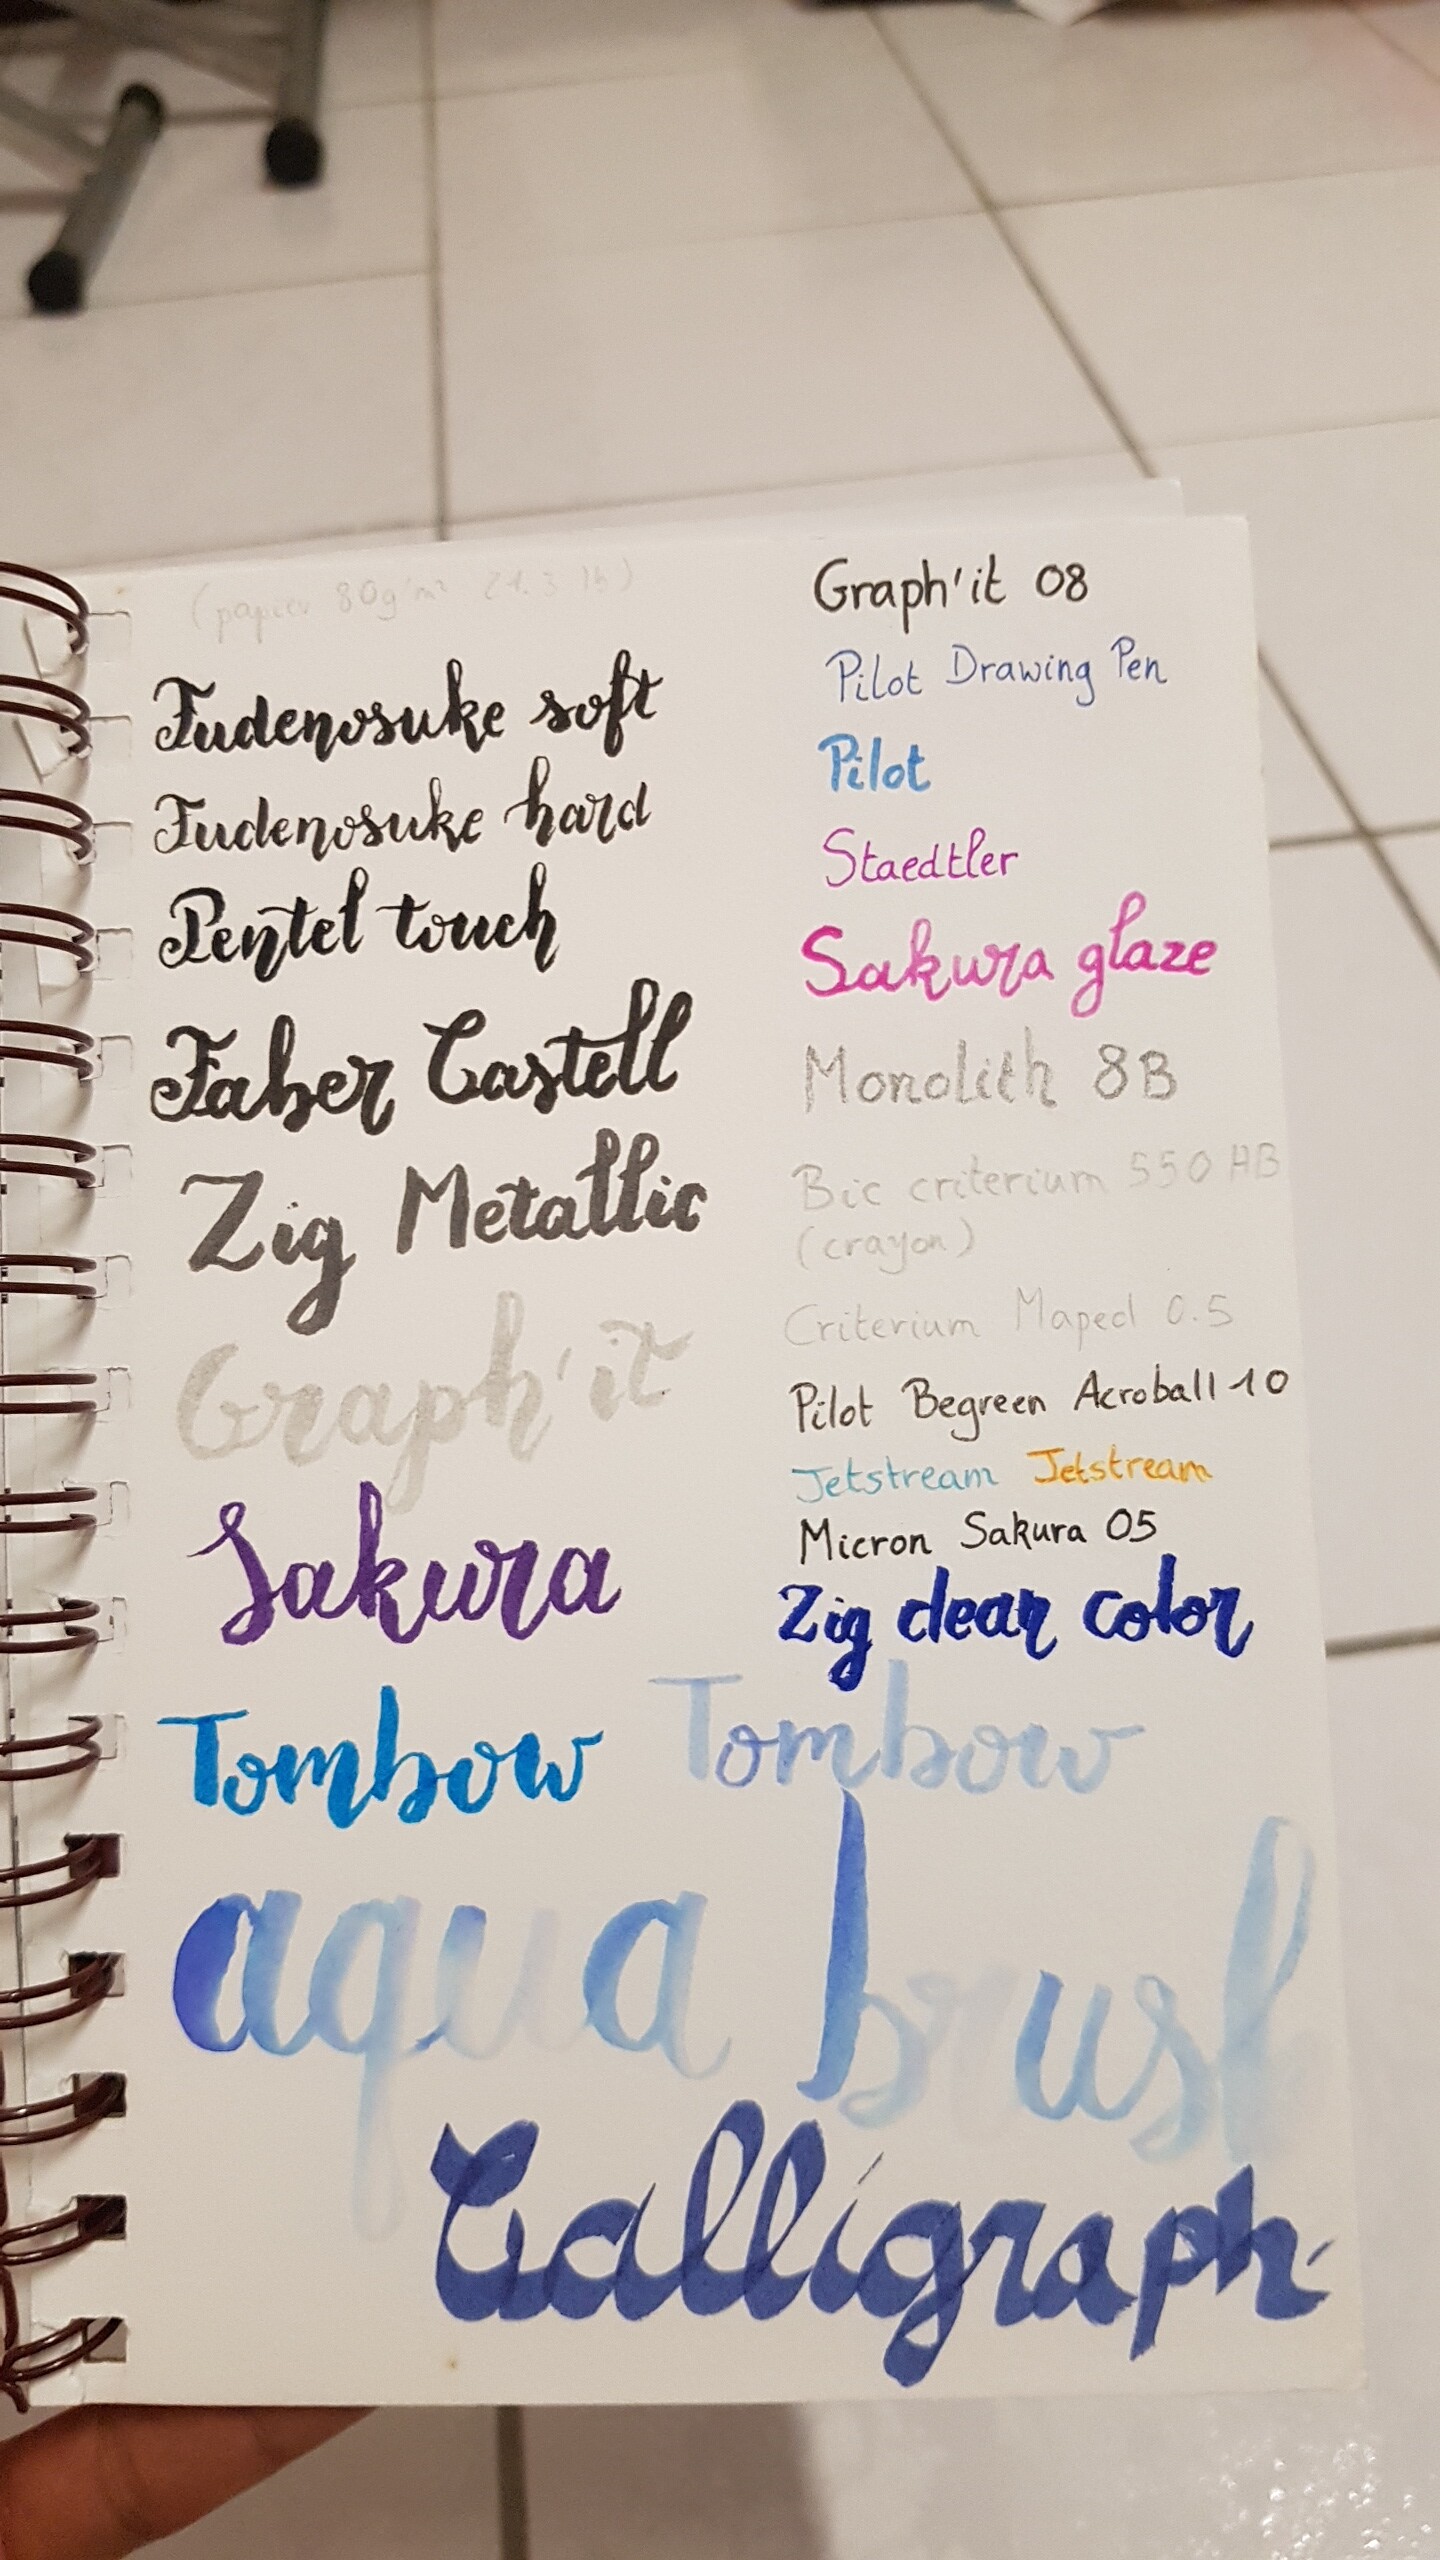 (papier 80g/m² 21.3 lb)
Fudenosuke soft
Fudenosuke hard
Pentel touch
Faber Castell
Zig Metallic
Graph'it
Sakura
Graph'it 08
Pilot Drawing Pen
Pilot
Staedtler
Sakura glaze
Monolith 8B
Bic criterium 550 HB
(crayon)
Criterium Maped 0.5
Pilot Begreen Acroball 10
Jetstream Jetstream
Micron Sakura 05
Zig clean color
Tombow Tombow
aqua brush
Calligraph